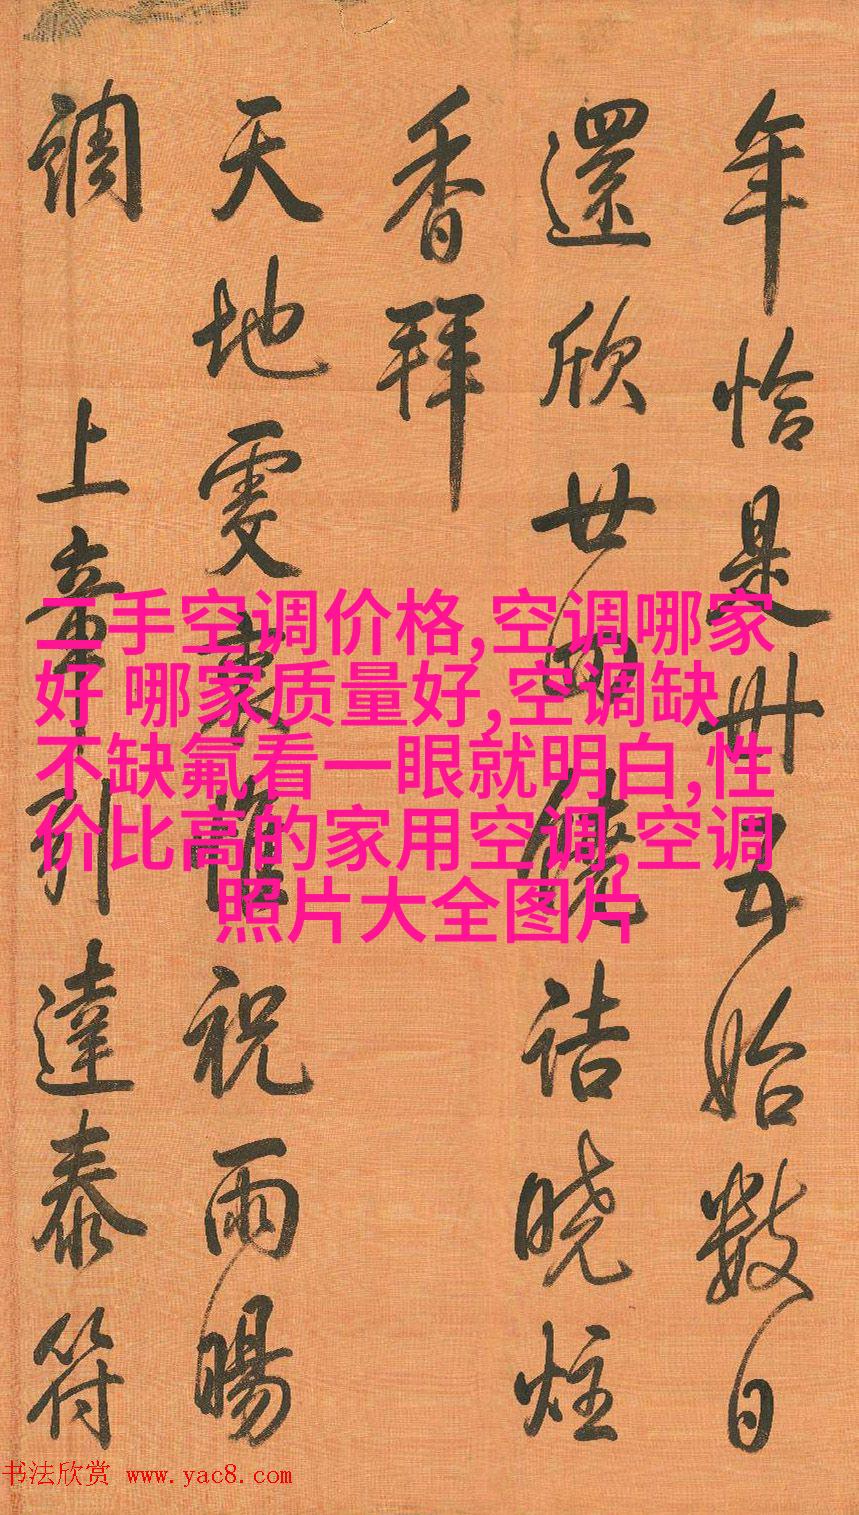 年恰是卅五始數日
還欣廿四饒詰曉炷
香拜
天地虔衷惟祝雨暘
調 上章引達泰符
二手空调价格,空调哪家
好 哪家质量好,空调缺
不缺氟看一眼就明白,性
价比高的家用空调,空调
照片大全图片
书法欣赏 www.yac8.com